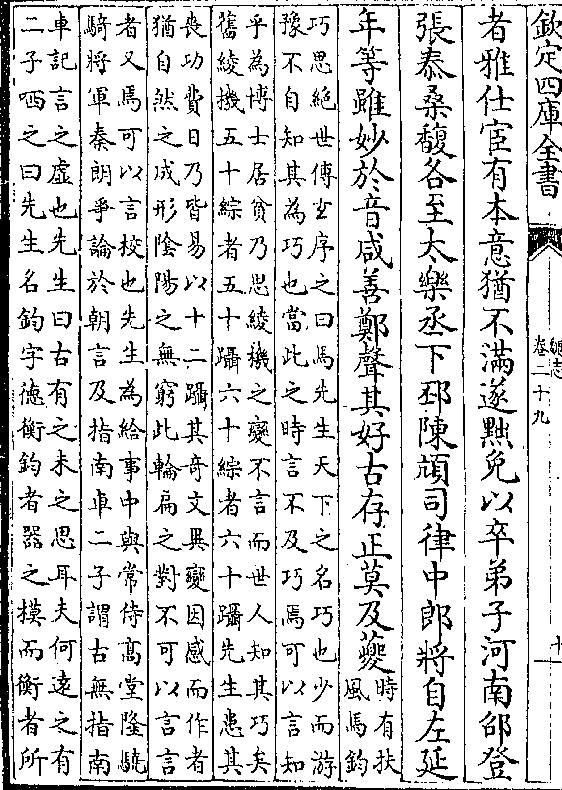 欽定四庫全書
魏志
卷二十九
十
者雅仕宦有本意猶不滿遂黜免以卒弟子河南邵登
張泰桑馥各至太樂丞下邳陳頏司律中郎將自左延
年等雖妙於音咸善鄭聲其好古存正莫及夔
時有扶
風馬鈞
巧思絶世傅玄序之曰馬先生天下之名巧也少而游
豫不自知其為巧也當此之時言不及巧焉可以言知
乎為博士居貧乃思綾機之變不言而世人知其巧矣
舊綾機五十綜者五十躡六十綜者六十躡先生患其
喪功費日乃皆易以十二躡其奇文異變因感而作者
猶自然之成形陰陽之無窮此輪扁之對不可以言言
者又焉可以言校也先生為給事中與常侍髙堂隆驍
騎將軍秦朗爭論於朝言及指南車二子謂古無指南
車記言之虛也先生曰古有之未之思耳夫何遠之有
二子哂之曰先生名鈞字德衡鈞者器之摸而衡者所